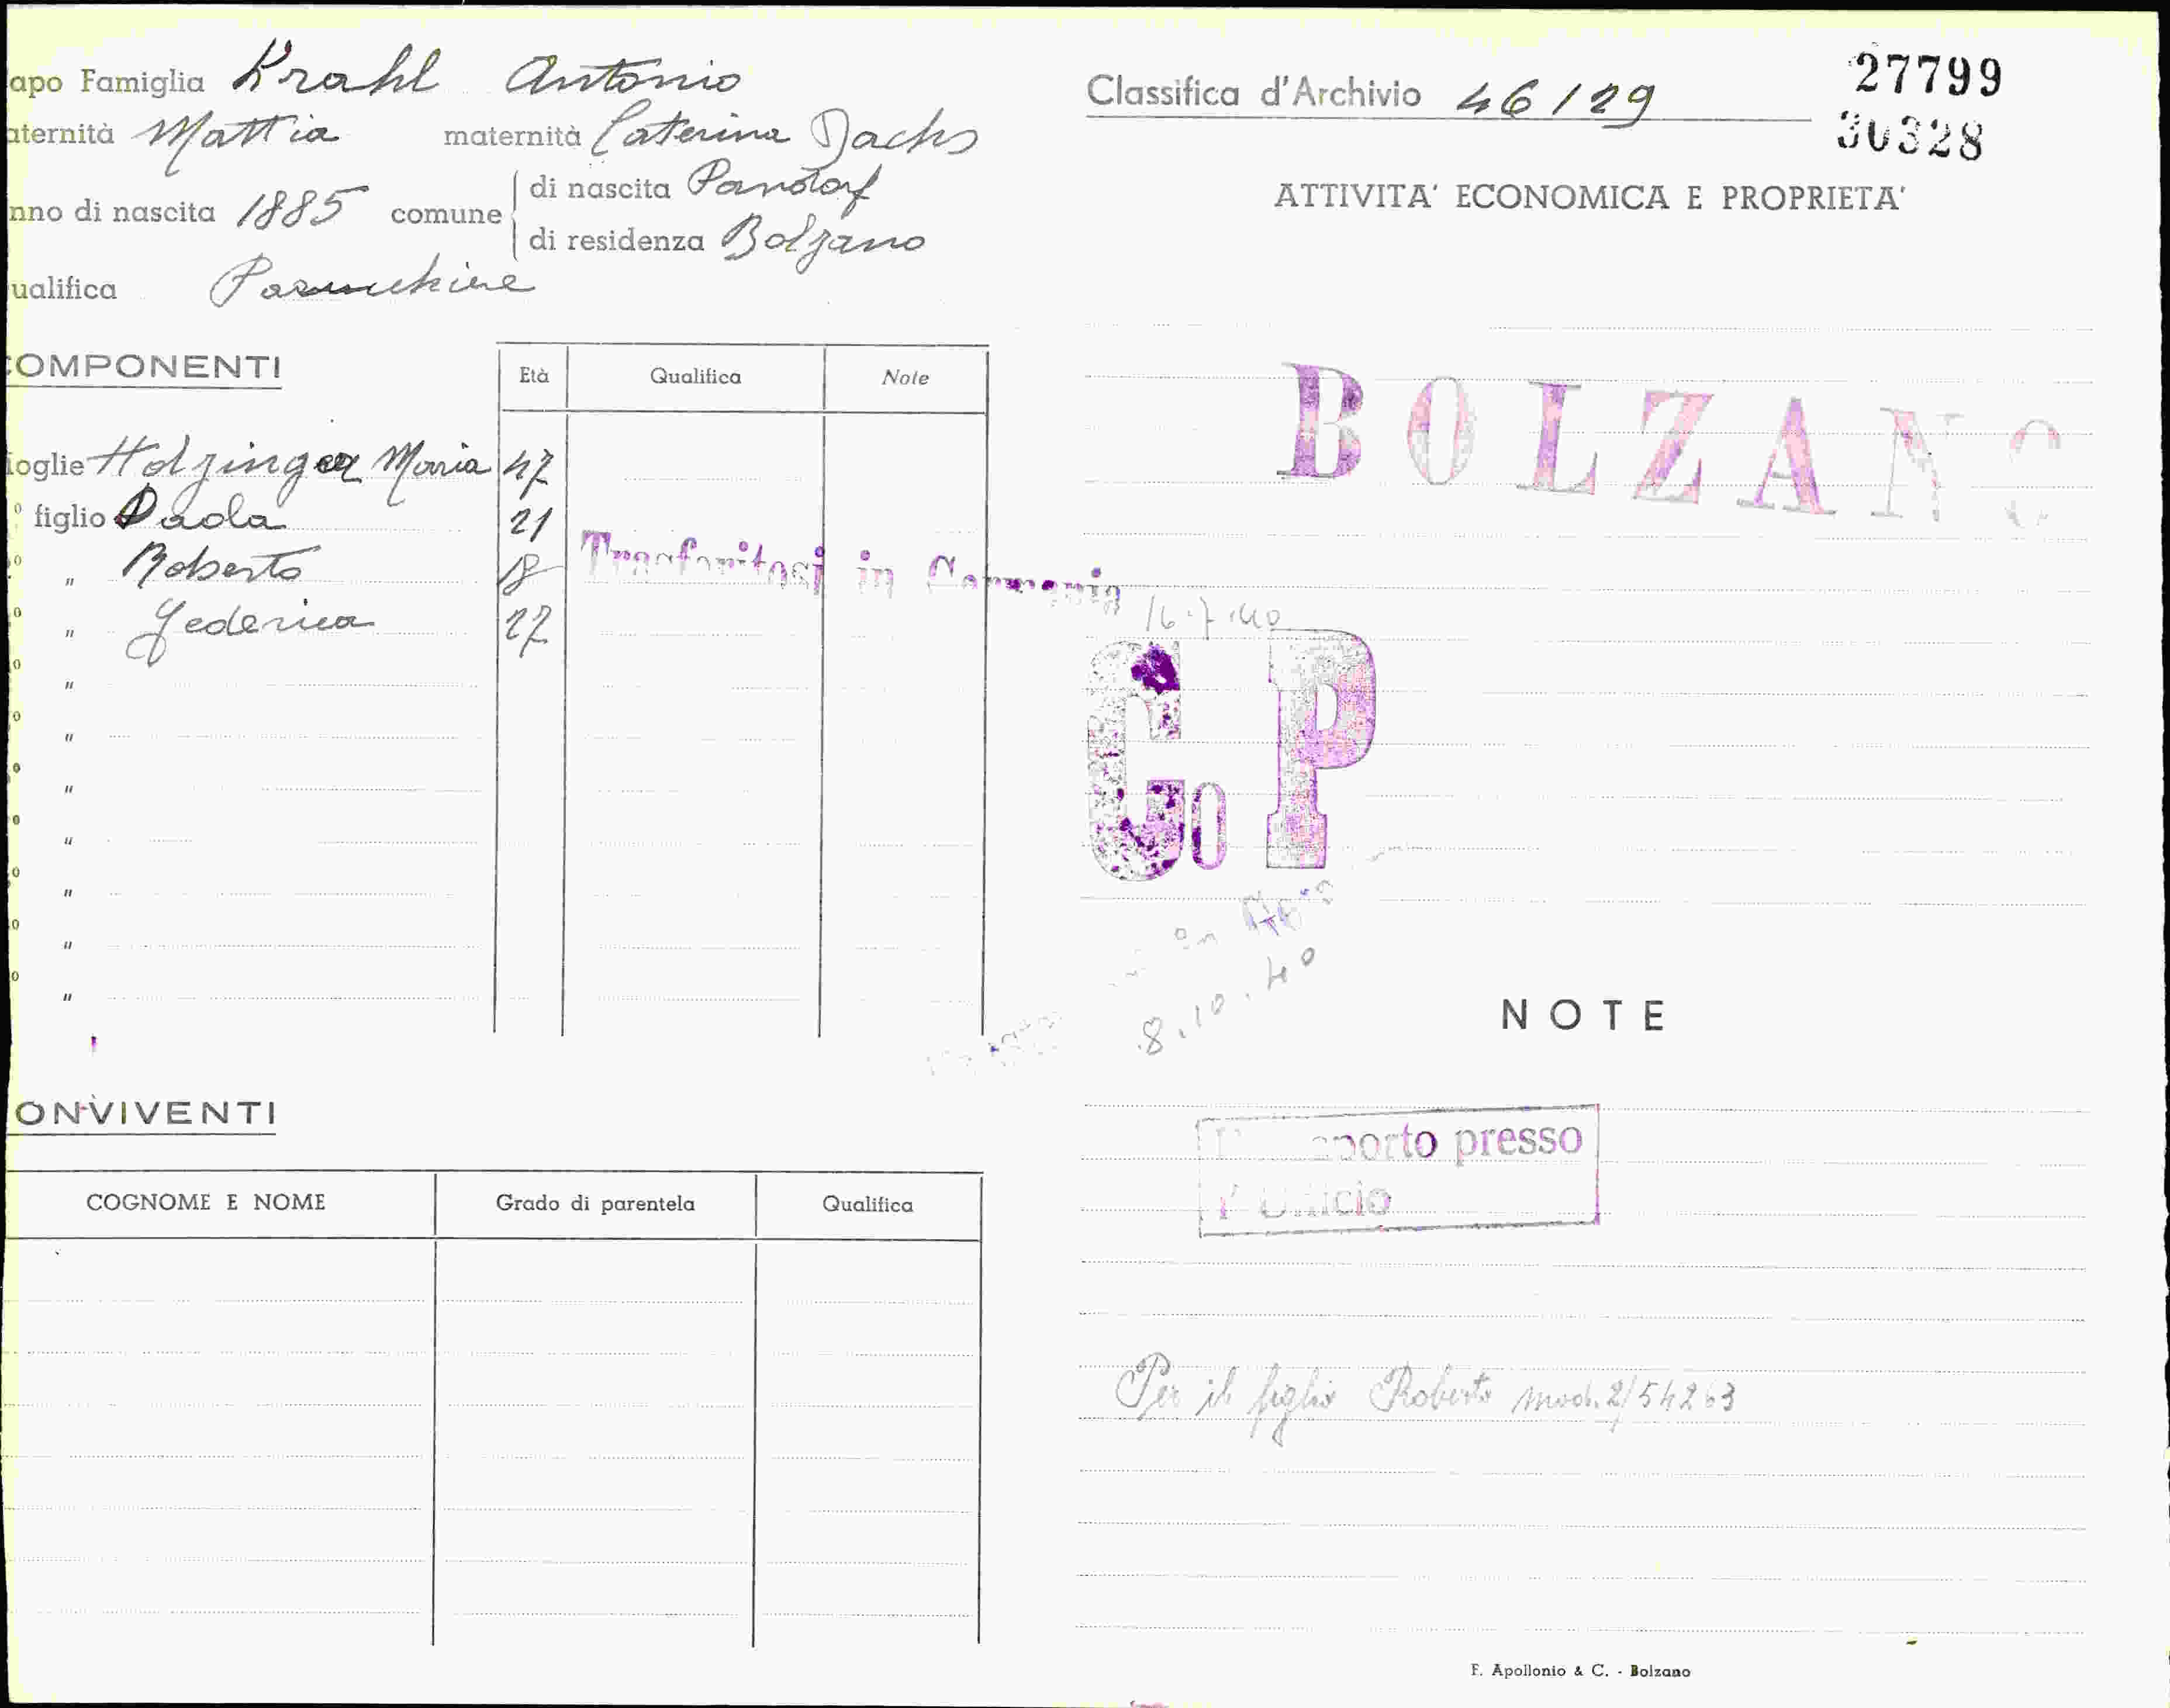 apo Famiglia Krahl Antonio
aternità Mattia maternità Caterina Dachs
nno di nascita 1885 comune di nascita Pandorf
di residenza Bolzano
ualifica Parucchiere
OMPONENTI
Età Qualifica Note
oglie Holzinger Maria 47
figlio Paola 21
" Roberto 18
" Federica 22
Trasferitosi in Germania
16.7.40
"
"
"
"
"
"
"
ONVIVENTI
COGNOME E NOME Grado di parentela Qualifica
Classifica d'Archivio 46/29
27799
30328
ATTIVITA' ECONOMICA E PROPRIETA'
BOLZANO
Go P
8.10.40
NOTE
presso
Per il figlio Roberto mod. 2/54263
F. Apollonio & C. - Bolzano